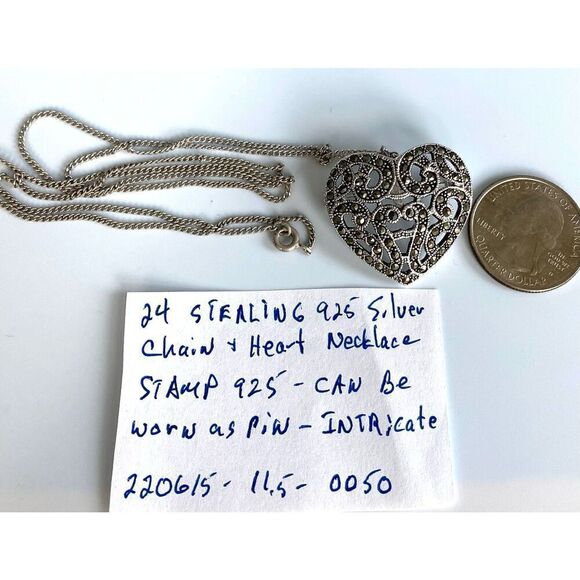 24 STERLING 925 Silver
Chain + Heart Necklace
STAMP 925 - CAN Be
worn as Pin - INTRicate
220615 - 11.5 - 0050
UNITED STATES OF AMERICA
LIBERTY
IN GOD WE TRUST
QUARTER DOLLAR